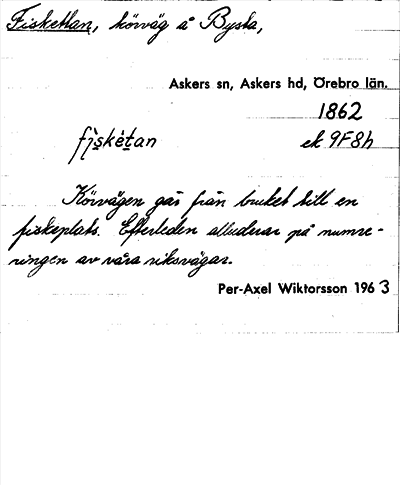 Fiskettan, körväg å Bysta,
Askers sn, Askers hd, Örebro län.
1862
fìs̱kétan ek 9F8h
Körvägen går från bruket till en
fiskeplats. Efterleden alluderar på numre-
ringen av våra riksvägar.
Per-Axel Wiktorsson 1963